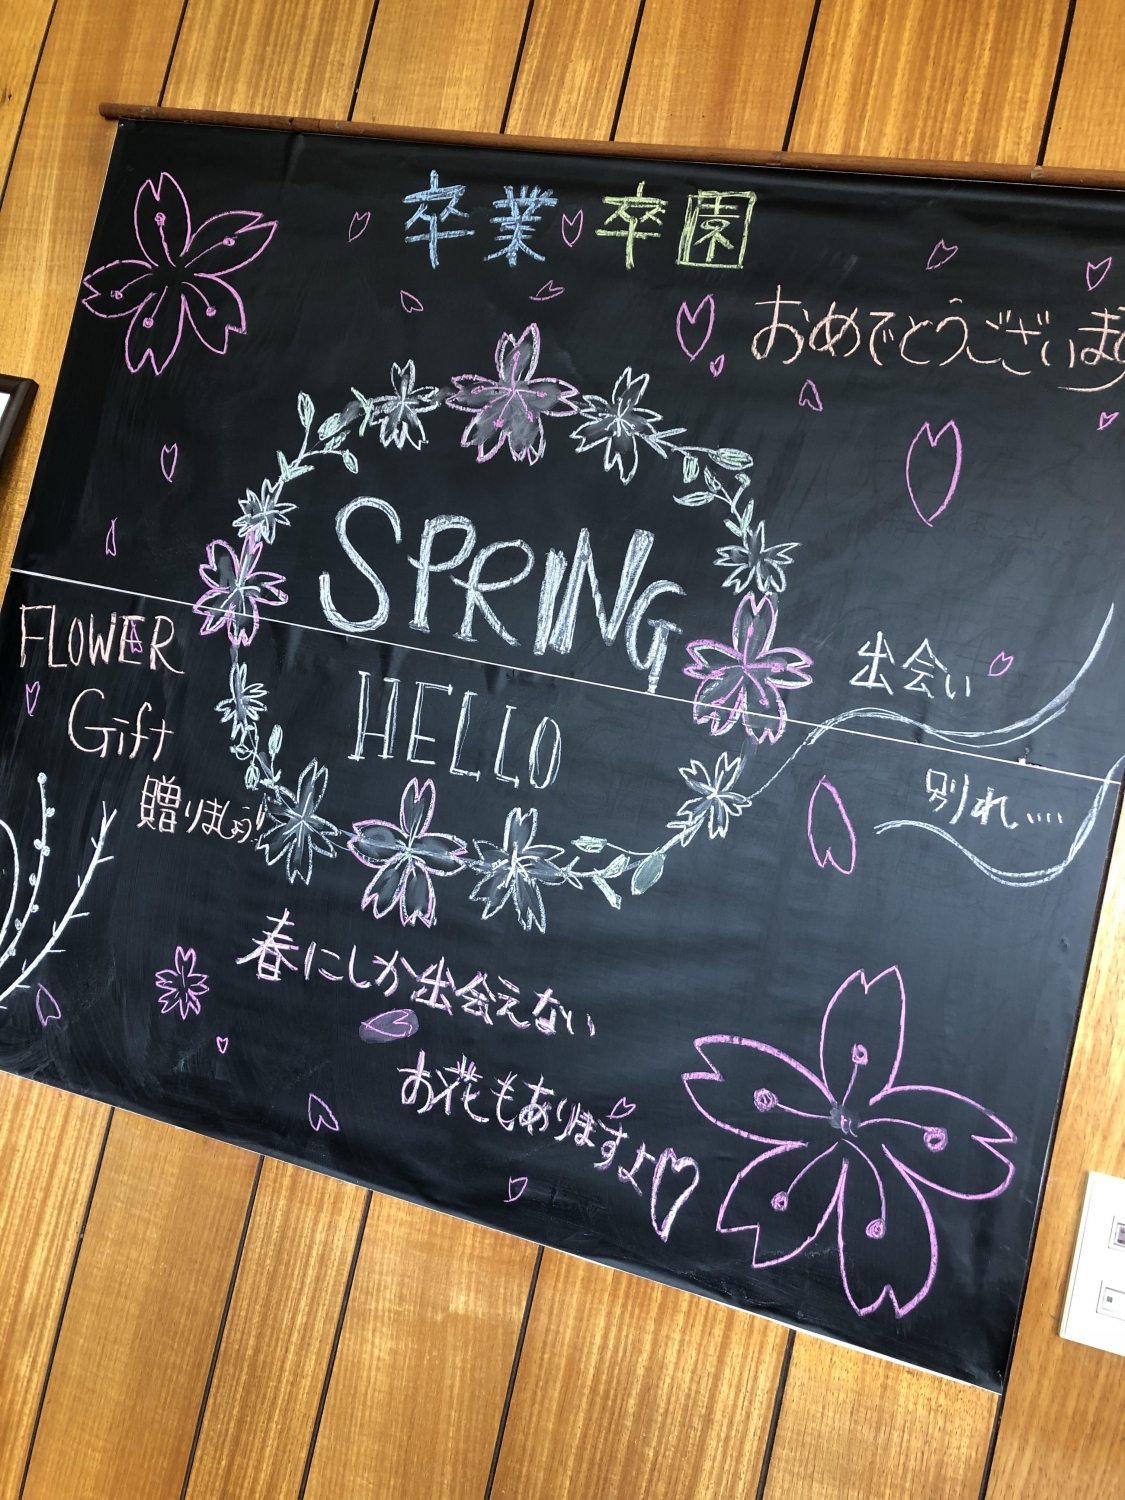 卒業 卒園
おめでとうございます
SPRING
HELLO
FLOWER
Gift
贈りましょう!!
出会い
別れ....
春にしか出会えない
お花もありますよ♡